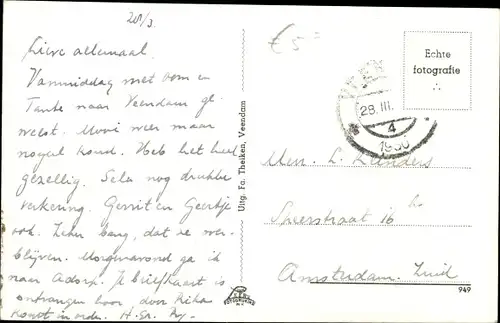 28/3
Lieve allemaal.
Vanmiddag met oom en
Tante naar Veendam ge-
weest. Mooi weer maar
nogal koud. Heb het heel
gezellig. Sela nog drukke
verkering. Gerrit en Geertje
ook. Leen bang, dat ze
blijven. Morgenavond ga ik
naar Adorp. Je briefkaart is
ontvangen hoor door Rika
komt in orde. H. Gr.
Uitg. Fa. Theiken, Veendam
€ 5
Echte
fotografie
28. III.
4
1950
Men. L.
Speerstraat 16 hs
Amsterdam. Zuid
949